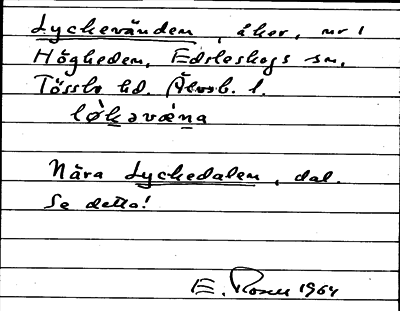 Lyckevänden, åker, nr 1
Högheden, Edsleskogs sn,
Tössbo hd. Älvsb. l.
løkavæna
Nära Lyckedalen, dal.
Se detta!
E. Rosell 1964